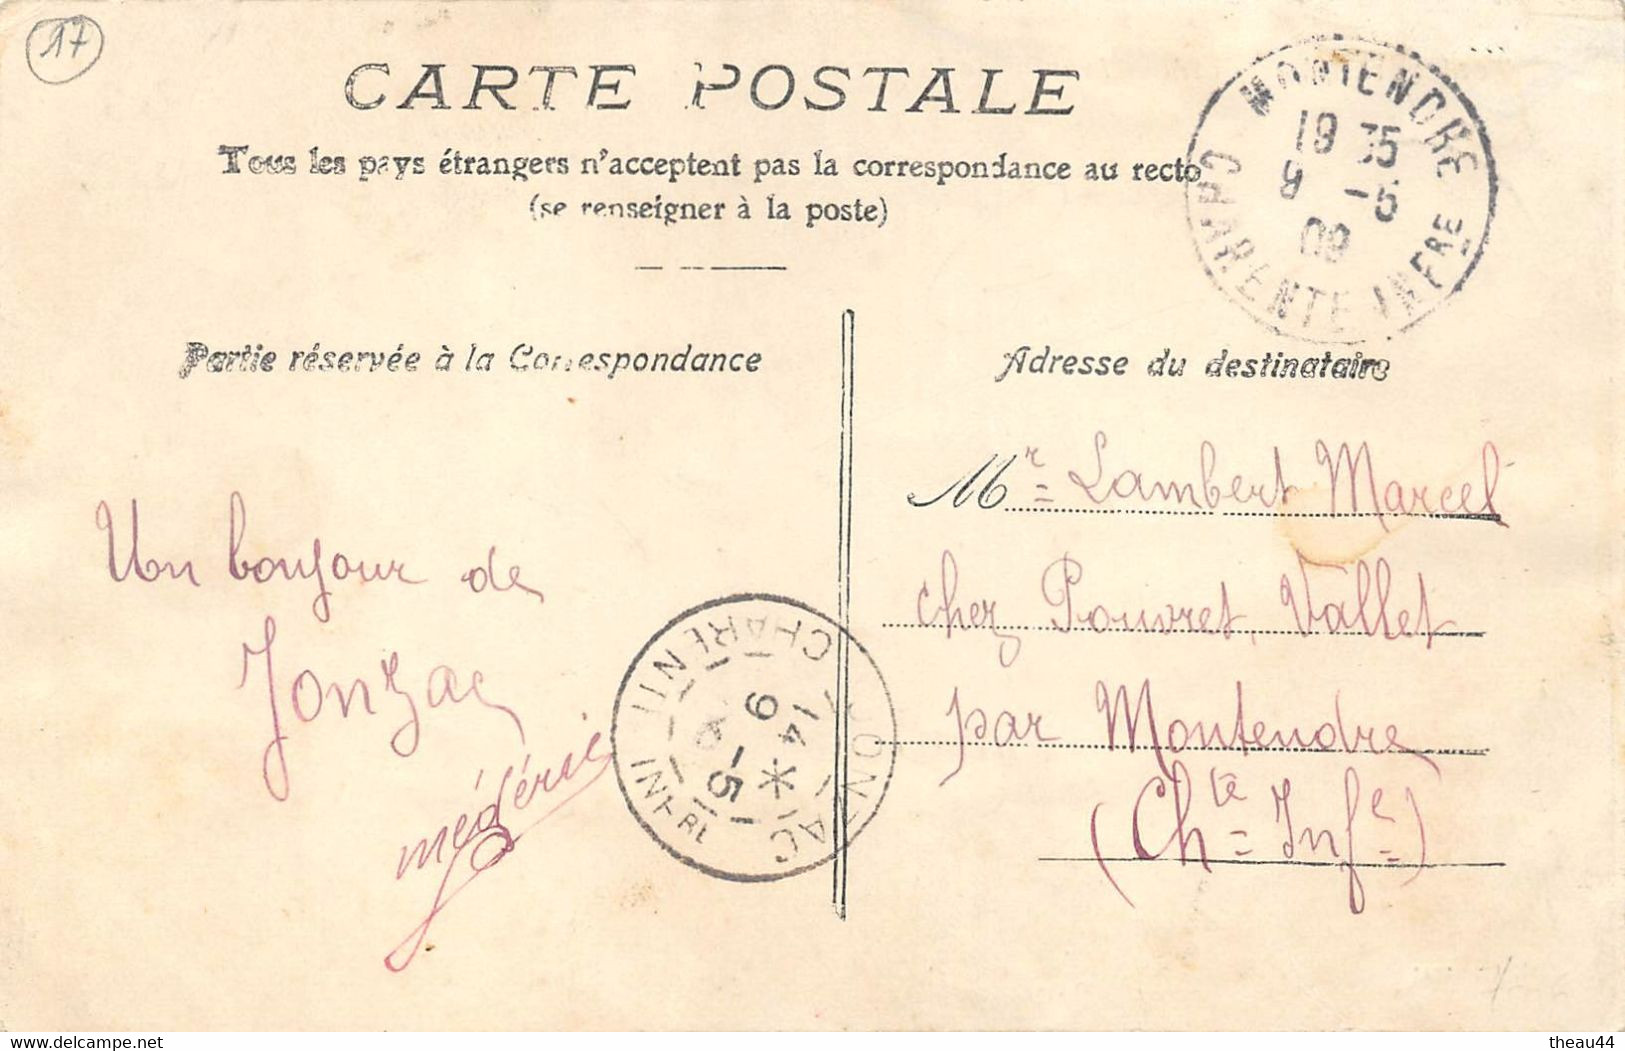 17
CARTE POSTALE
Tous les pays étrangers n'acceptent pas la correspondance au recto
(se renseigner à la poste)
MONTENDRE
19 35
9 -5
09
CHARENTE INFRE
Partie réservée à la Correspondance
Adresse du destinataire
Un bonjour de
Jonzac
médéric
JONZAC
14 *
9 -5
CHARENTE INFRE
Mr Lambert Marcel
chez Pouvret, Vallet
par Montendre
(Chte Infe)
delcampe.net
theau44